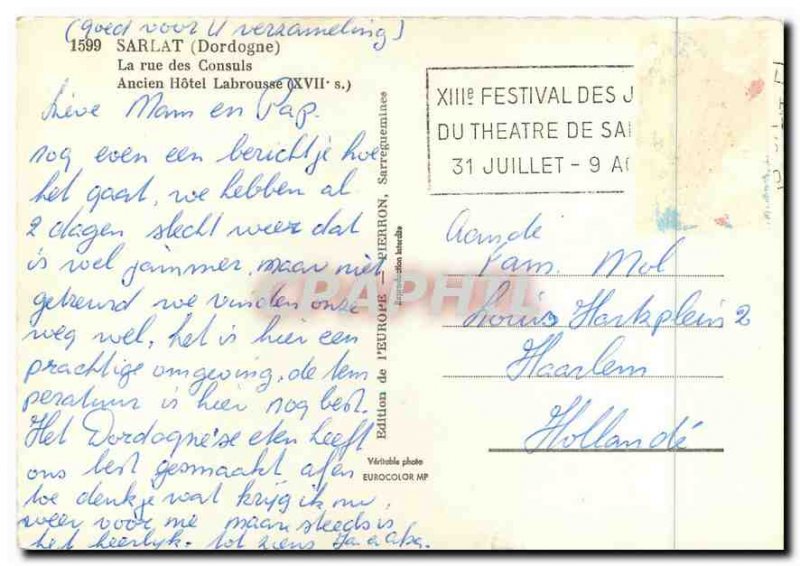 (goed voor U verzameling)
1599 SARLAT (Dordogne)
La rue des Consuls
Ancien Hôtel Labrousse (XVIIe s.)
Lieve Mam en Pap.
nog even een berichtje hoe
het gaat, we hebben al
2 dagen slecht weer dat
is wel jammer, maar niet
getreurd we vinden onze
weg wel, het is hier een
prachtige omgeving, de tem
peratuur is hier nog best.
Het Dordogne'se eten heeft
ons best gesmaakt af en
toe denk je wat krijg ik nu
weer voor me maar steeds is
het heerlijk. tot ziens
Edition de l'EUROPE — PIERRON, Sarreguemines
Reproduction interdite
CPAPHIL
Véritable photo
EUROCOLOR MP
XIIIe FESTIVAL DES J
DU THEATRE DE SA
31 JUILLET - 9 AO
Aan de
Fam. Mol
Louis 2
Haarlem
Hollandé